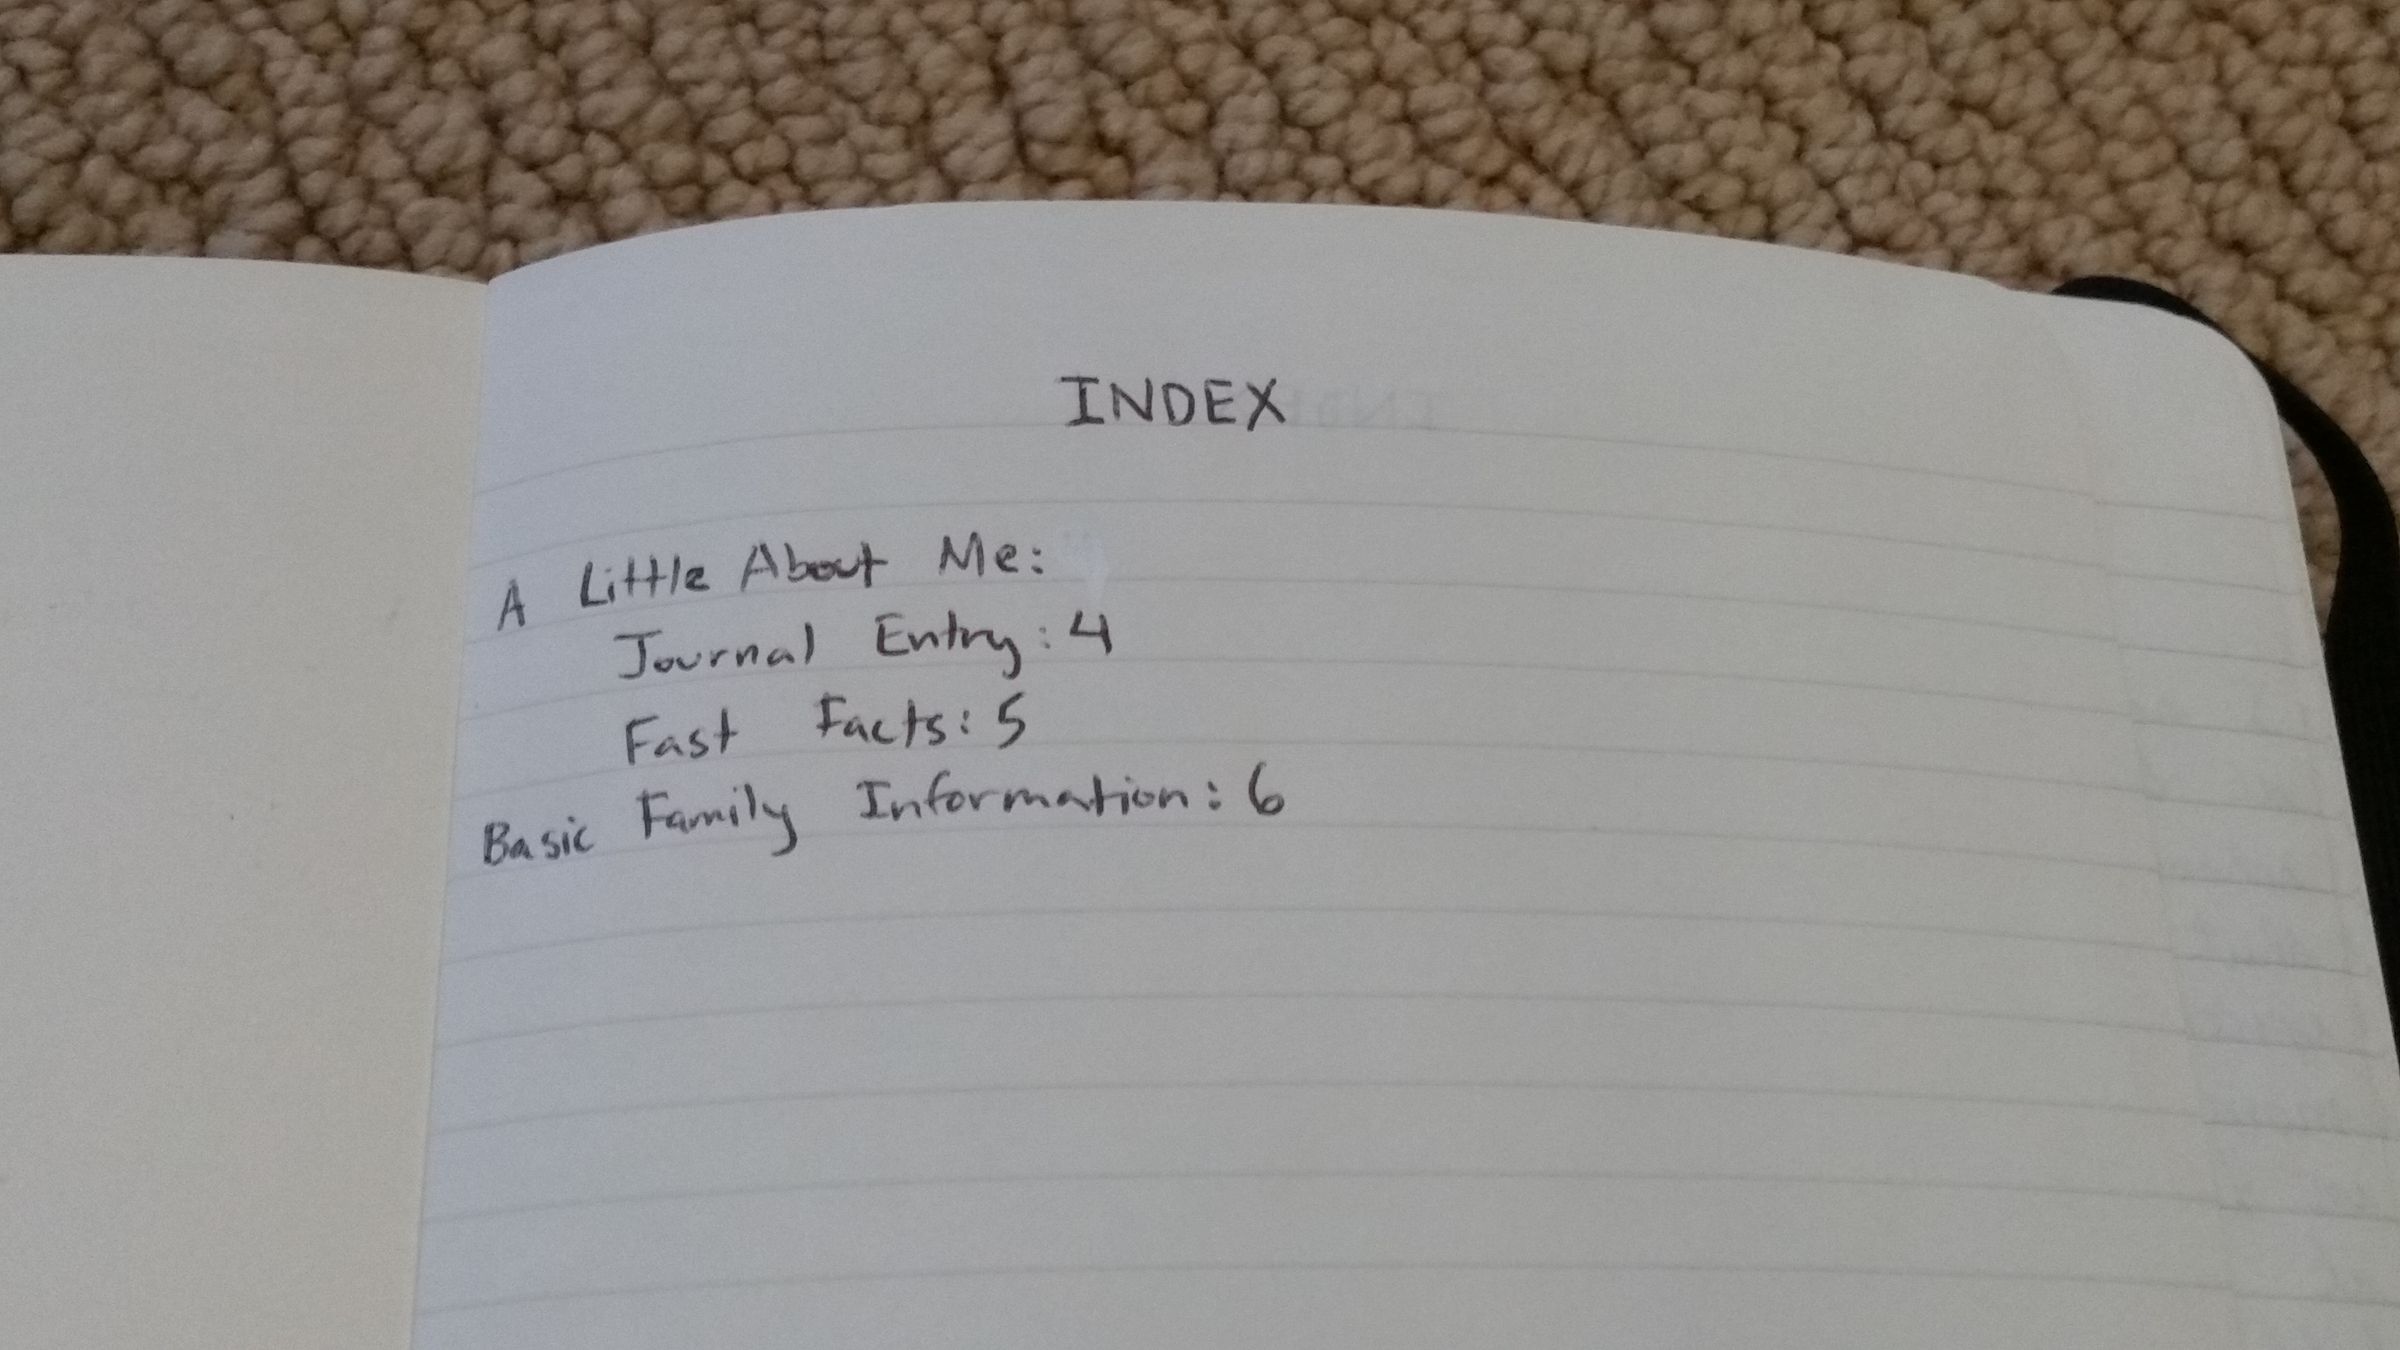 INDEX
A Little About Me:
Journal Entry: 4
Fast Facts: 5
Basic Family Information: 6